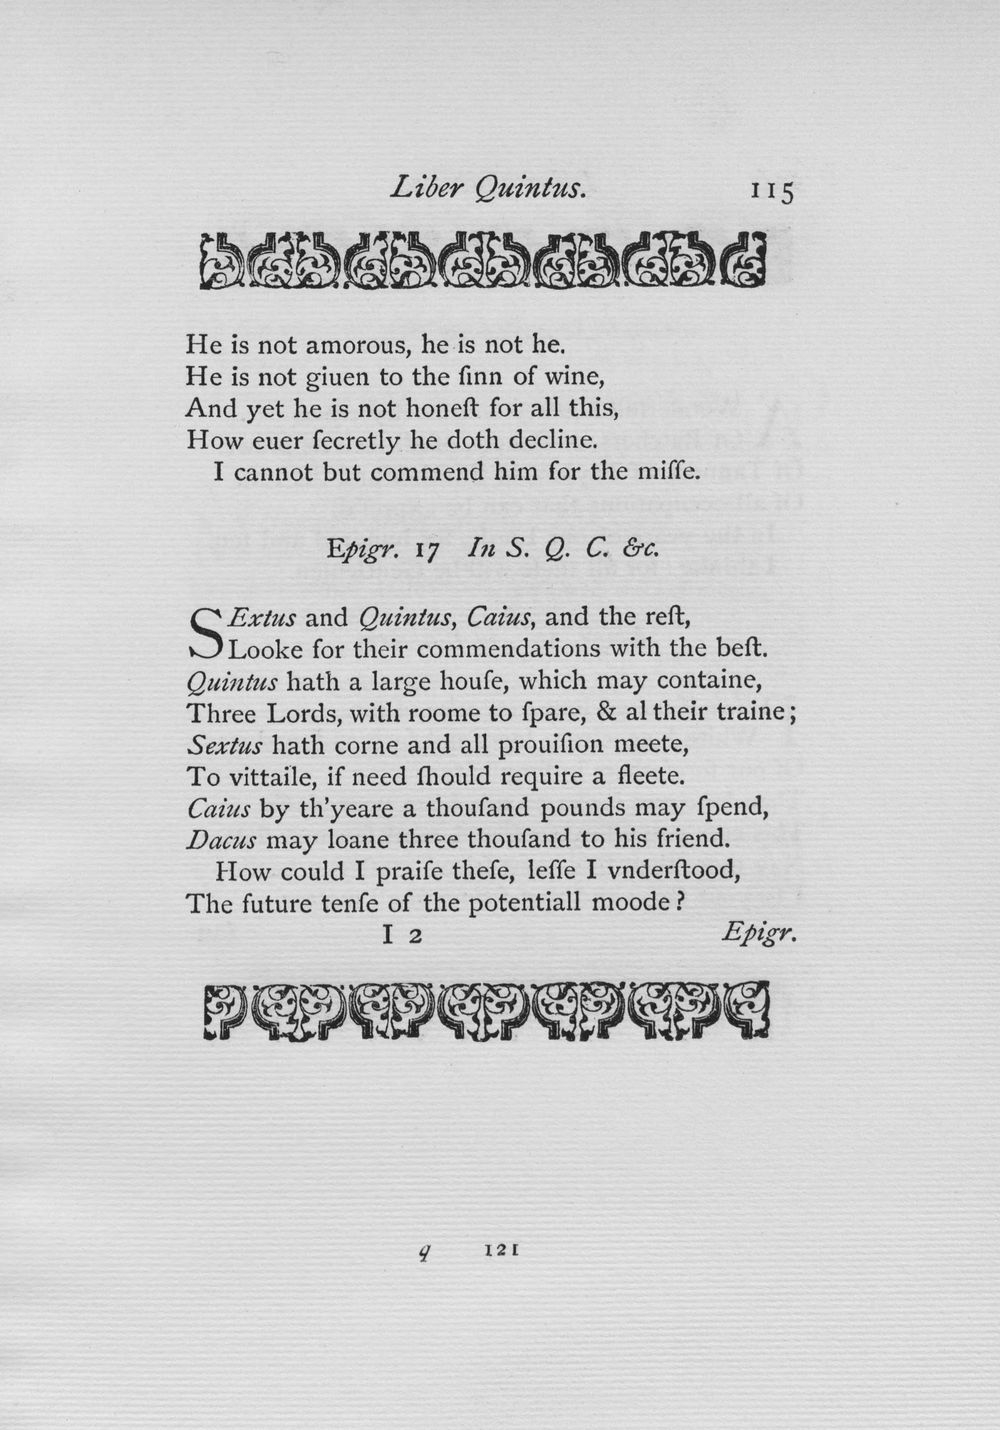 Liber Quintus. 115
He is not amorous, he is not he.
He is not giuen to the ſinn of wine,
And yet he is not honeſt for all this,
How euer ſecretly he doth decline.
I cannot but commend him for the miſſe.
Epigr. 17 In S. Q. C. &c.
SExtus and Quintus, Caius, and the reſt,
Looke for their commendations with the beſt.
Quintus hath a large houſe, which may containe,
Three Lords, with roome to ſpare, & al their traine;
Sextus hath corne and all prouiſion meete,
To vittaile, if need ſhould require a fleete.
Caius by th'yeare a thouſand pounds may ſpend,
Dacus may loane three thouſand to his friend.
How could I praiſe theſe, leſſe I vnderſtood,
The future tenſe of the potentiall moode?
I 2 Epigr.
q 121